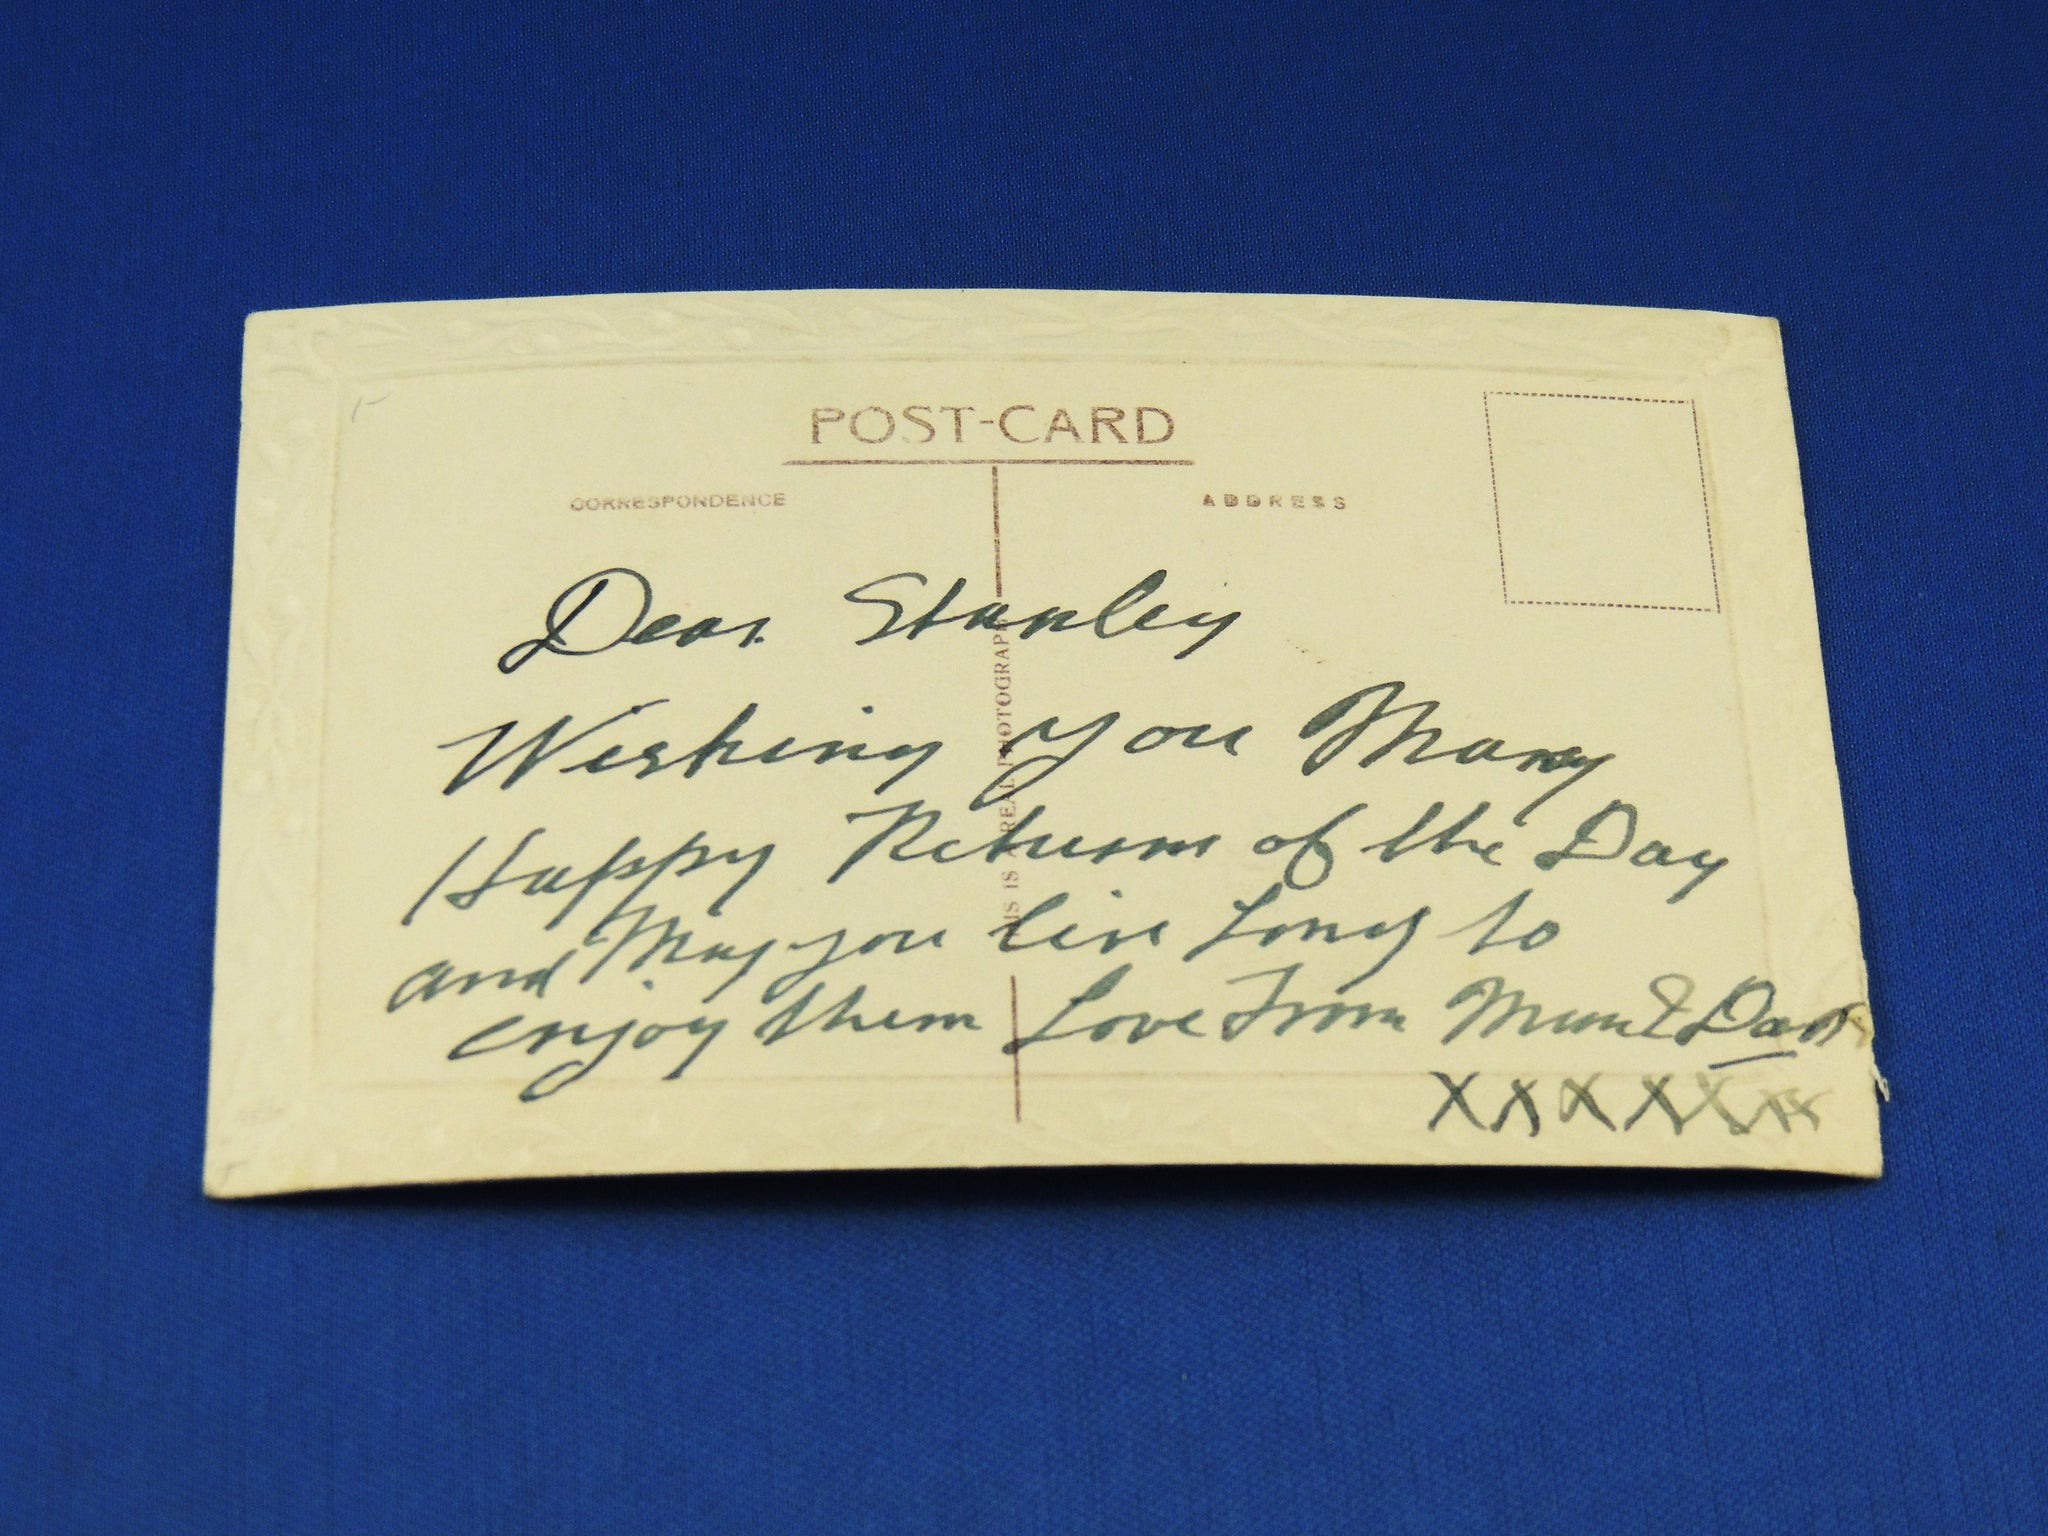 POST-CARD
CORRESPONDENCE
ADDRESS
THIS IS A REAL PHOTOGRAPH
Dear Stanley
Wishing you Many
Happy Returns of the Day
and May you live Long to
enjoy them Love From Mum & Dad
XXXXXX